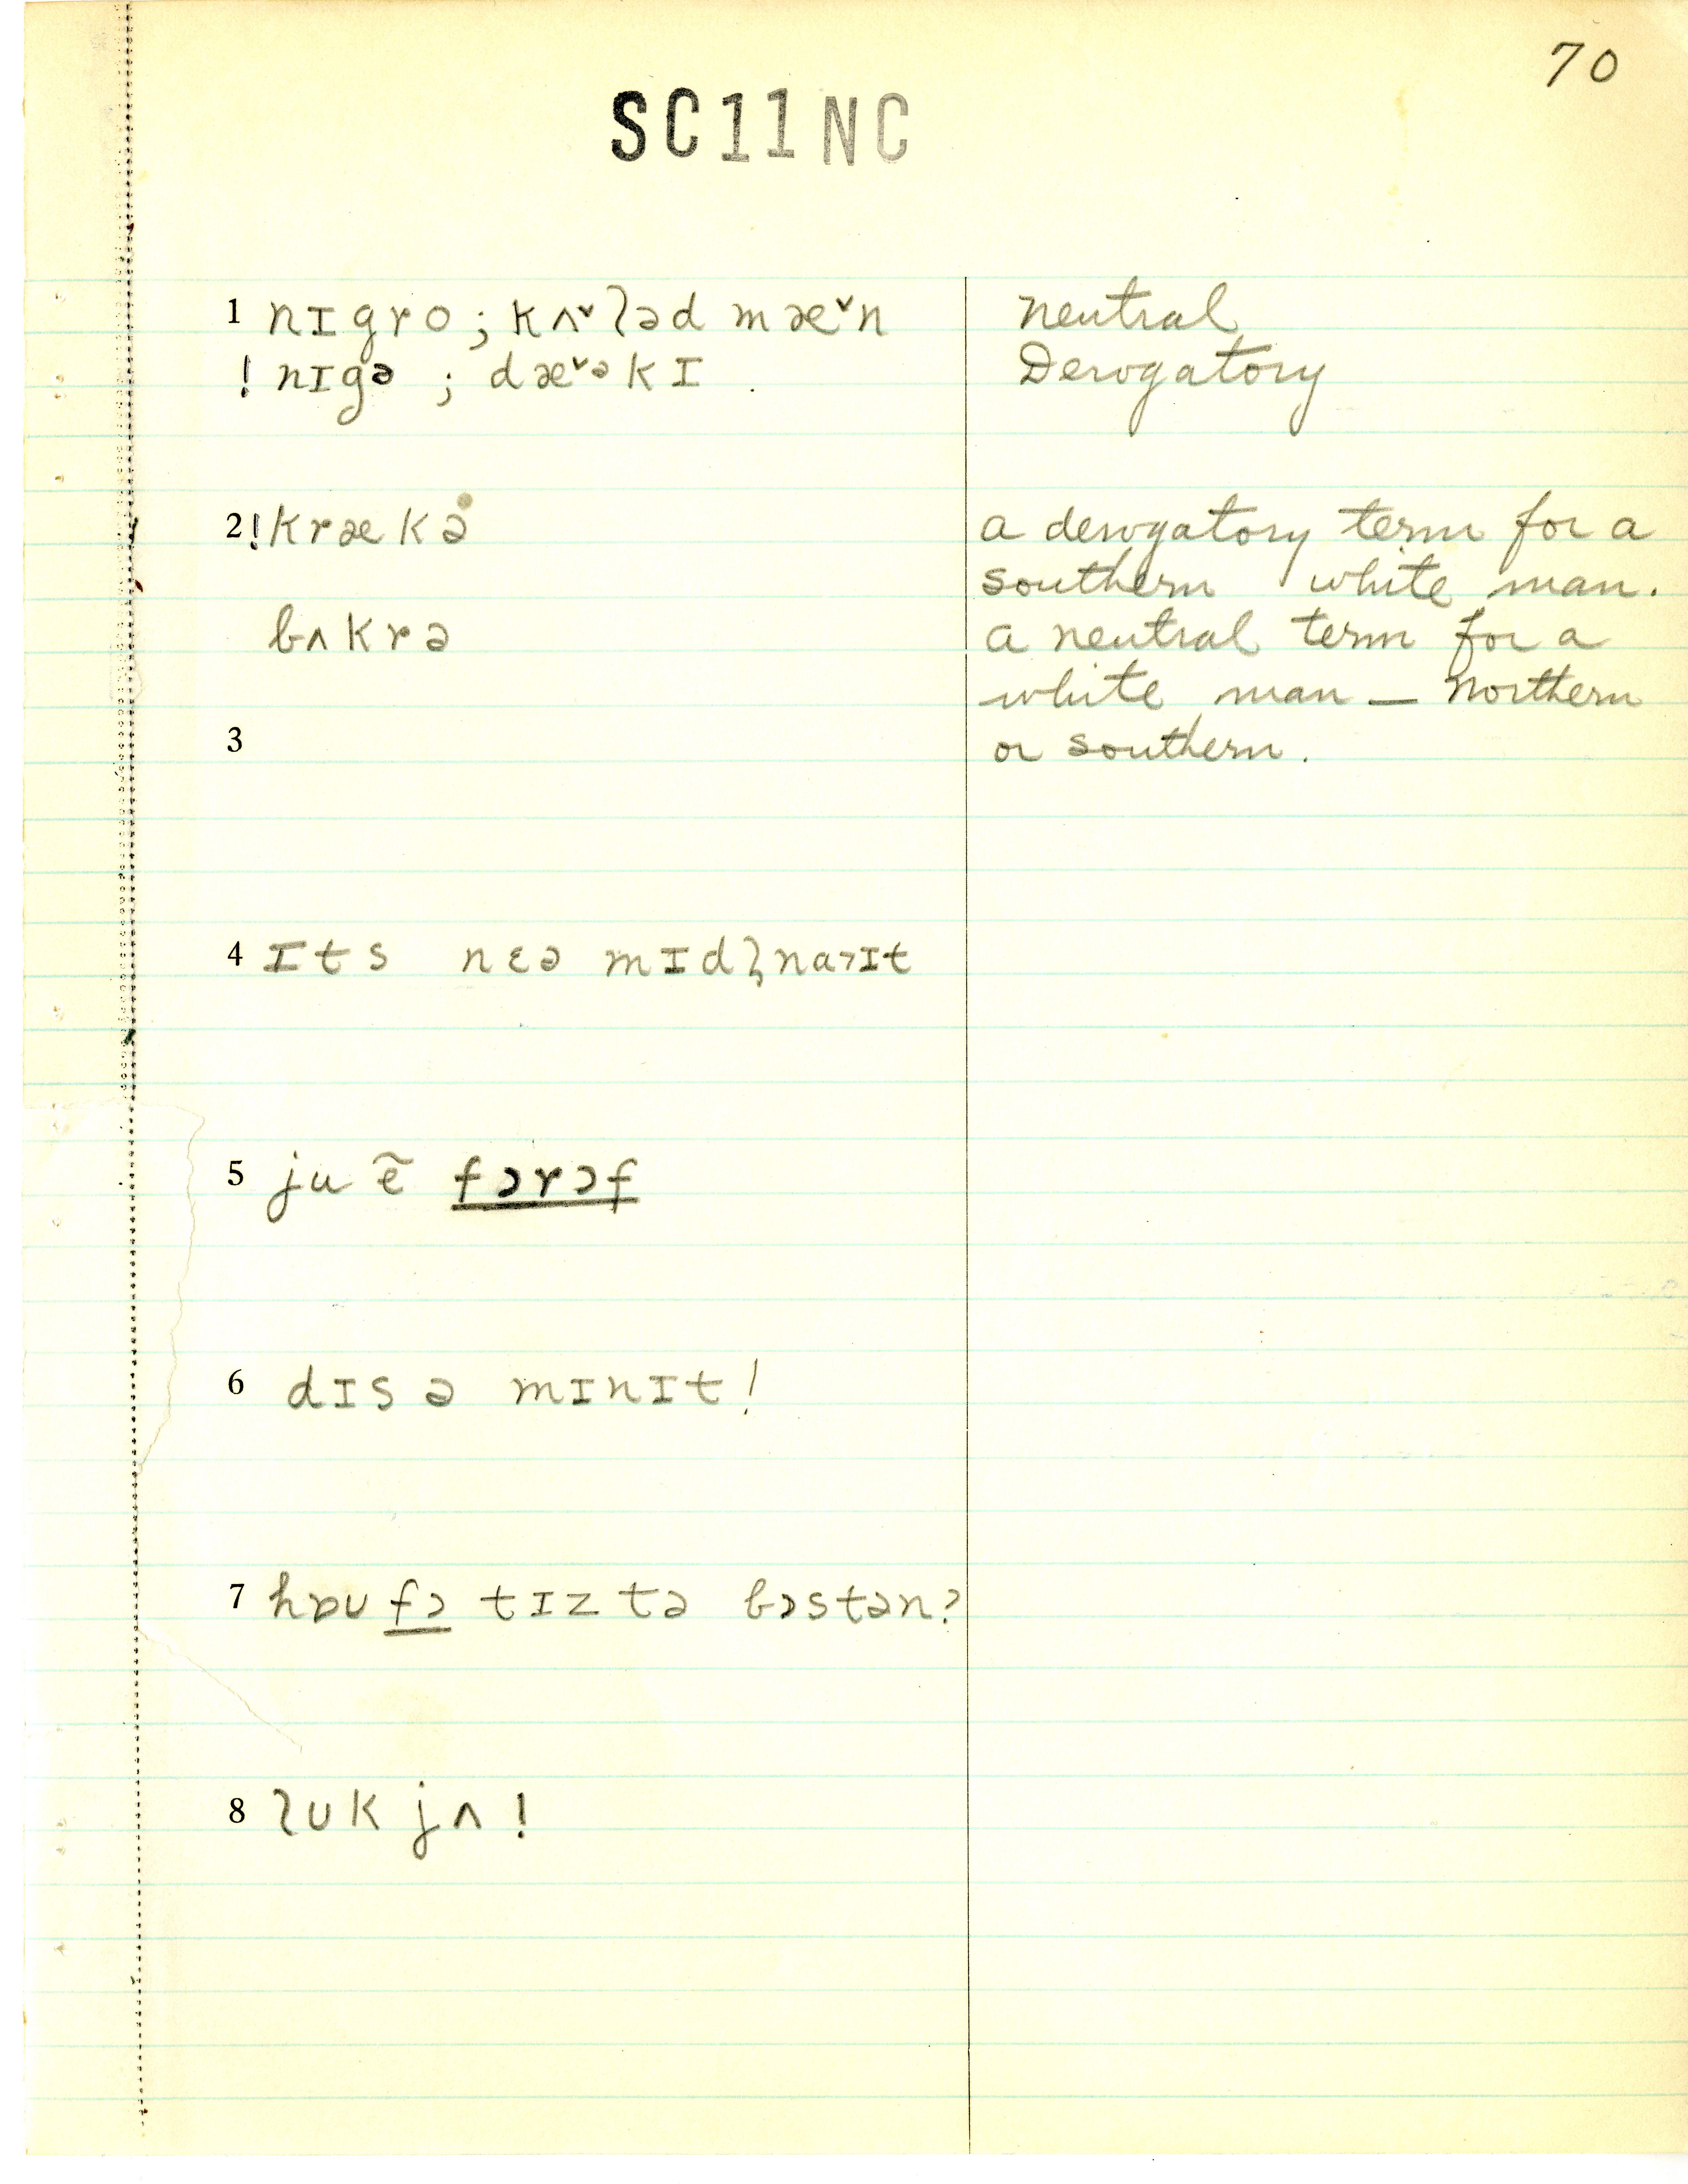 70
SC11NC
1 nɪgro; kʌ˅ləd mæ˅n neutral
! nɪgə ; dæ˅ᵊkɪ Derogatory
2 ! krækə a derogatory term for a
southern white man.
bʌkrə a neutral term for a
white man — Northern
3 or southern.
4 ɪts nɛə mɪdl̩naɪt
5 ju ẽ fɔrɔf
6 dɪs ə mɪnɪt!
7 hɒʊ fɔ tɪz tə bɔstən?
8 lʊk jʌ!